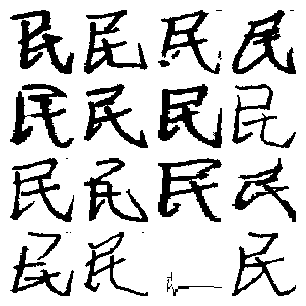 民民民民
民民民民
民民民民
民民民